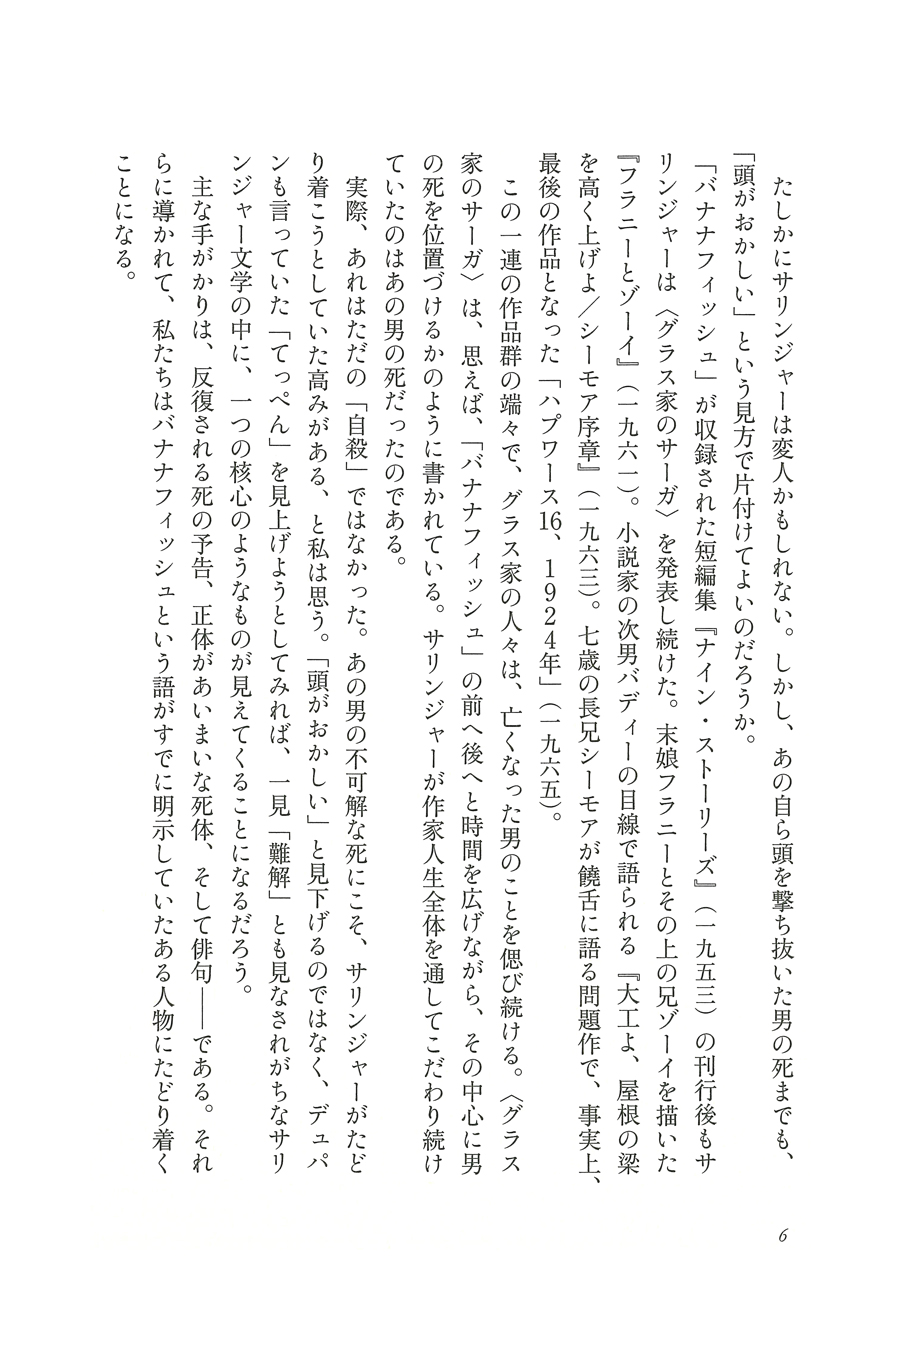 たしかにサリンジャーは変人かもしれない。しかし、あの自ら頭を撃ち抜いた男の死までも、
「頭がおかしい」という見方で片付けてよいのだろうか。
「バナナフィッシュ」が収録された短編集『ナイン・ストーリーズ』（一九五三）の刊行後もサ
リンジャーは〈グラス家のサーガ〉を発表し続けた。末娘フラニーとその上の兄ゾーイを描いた
『フラニーとゾーイ』（一九六一）。小説家の次男バディーの目線で語られる『大工よ、屋根の梁
を高く上げよ／シーモア序章』（一九六三）。七歳の長兄シーモアが饒舌に語る問題作で、事実上、
最後の作品となった「ハプワース16、1924年」（一九六五）。
この一連の作品群の端々で、グラス家の人々は、亡くなった男のことを偲び続ける。〈グラス
家のサーガ〉は、思えば、「バナナフィッシュ」の前へ後へと時間を広げながら、その中心に男
の死を位置づけるかのように書かれている。サリンジャーが作家人生全体を通してこだわり続け
ていたのはあの男の死だったのである。
実際、あれはただの「自殺」ではなかった。あの男の不可解な死にこそ、サリンジャーがたど
り着こうとしていた高みがある、と私は思う。「頭がおかしい」と見下げるのではなく、デュパ
ンも言っていた「てっぺん」を見上げようとしてみれば、一見「難解」とも見なされがちなサリ
ンジャー文学の中に、一つの核心のようなものが見えてくることになるだろう。
主な手がかりは、反復される死の予告、正体があいまいな死体、そして俳句――である。それ
らに導かれて、私たちはバナナフィッシュという語がすでに明示していたある人物にたどり着く
ことになる。
6